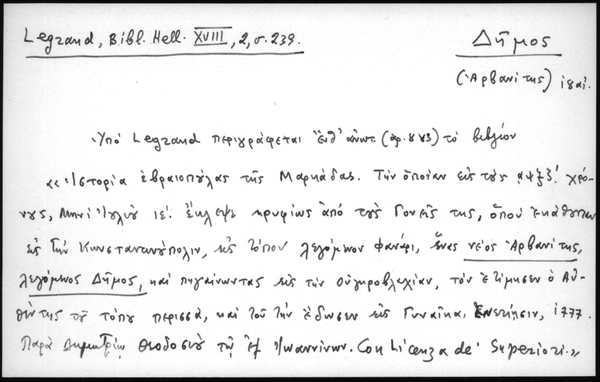 Legrand, Bibl. Hell. XVIII, 2, σ. 239.
Δῆμος
(Ἀρβανίτης) ιη΄ αἰ.
Ὑπὸ Legrand περιγράφεται ἔνθ' ἀνωτ. (ἀρ. 843) τὸ βιβλίον
«Ἱστορία ἑβραιοπούλας τῆς Μαρκάδας. Τὴν ὁποίαν εἰς τοὺς αψξξ΄ χρό-
νους, Μηνὶ Ἰουλίῳ ιε΄. ἔκλεψε κρυφίως ἀπὸ τοὺς Γονεῖς της, ὁποῦ ἐκάθοντον
εἰς τὴν Κωνσταντινούπολιν, εἰς τόπον λεγόμενον φανάρι, ἕνας νέος Ἀρβανίτης,
λεγόμενος Δῆμος, καὶ πηγαίνωντας εἰς τὴν οὐγκροβλαχίαν, τὸν ἐτίμησεν ὁ Αὐ-
θέντης τοῦ τόπου περισσά, καὶ τοῦ τὴν ἔδωσεν εἰς Γυναῖκα. Ἐνετίησιν, 1777.
Παρὰ Δημητρίῳ Θεοδοσίου τῷ ἐξ Ἰωαννίνων. Con Licenza de' Superiori.»